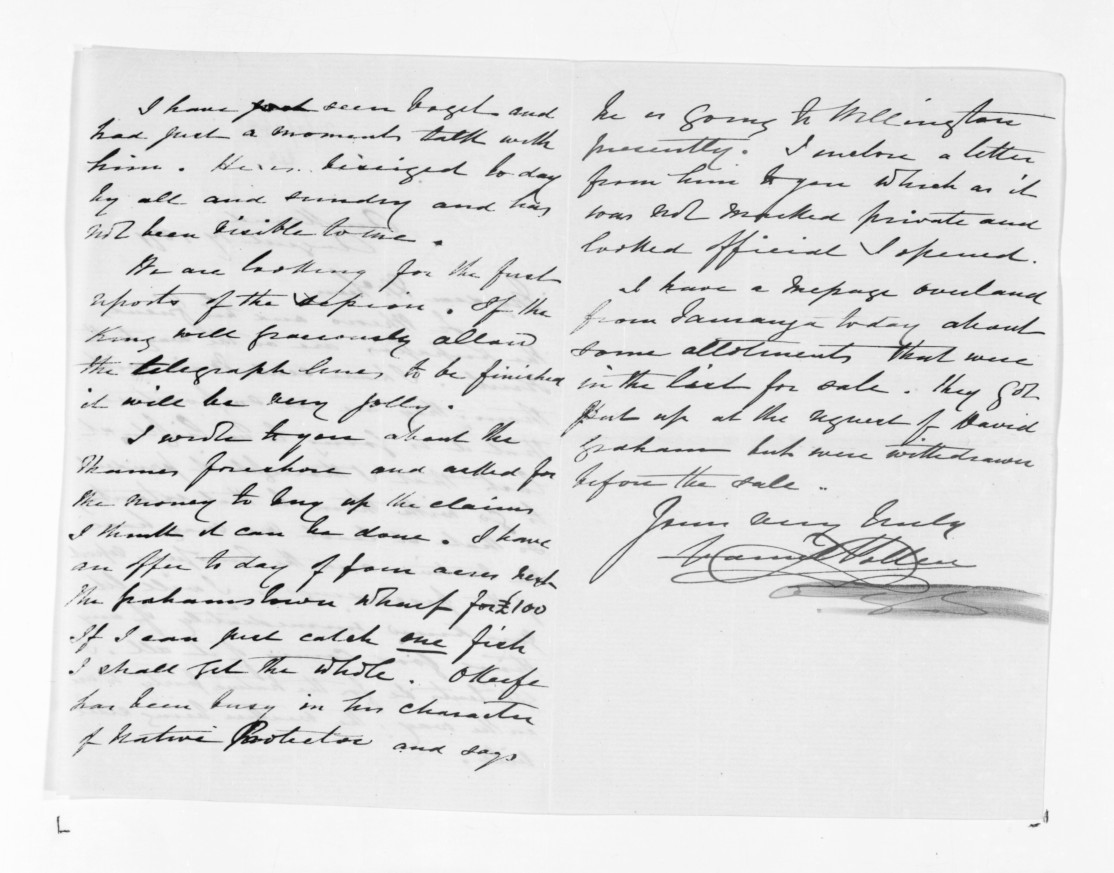 I have seen Vogel and
had just a moments talk with
him. He is besieged to day
by all and sundry and has
not been visible to me.
We are looking for the first
reports of the session. If the
King will graciously allow
the telegraph lines to be finished
it will be very jolly.
I wrote to you about the
Thames foreshore and asked for
the money to buy up the claims
I think it can be done. I have
an offer to day of four acres next
the Grahamstown Wharf for £100
If I can just catch one fish
I shall get the whole. OKeefe
has been busy in his character
of Native Protector and says
he is going to Wellington
presently. I enclose a letter
from him to you which as it
was not marked private and
looked official I opened.
I have a message overland
from Tauranga to day about
some allotments that were
in the list for sale. They got
put up at the request of David
Graham but were withdrawn
before the sale.
Yours very truly
Pollen